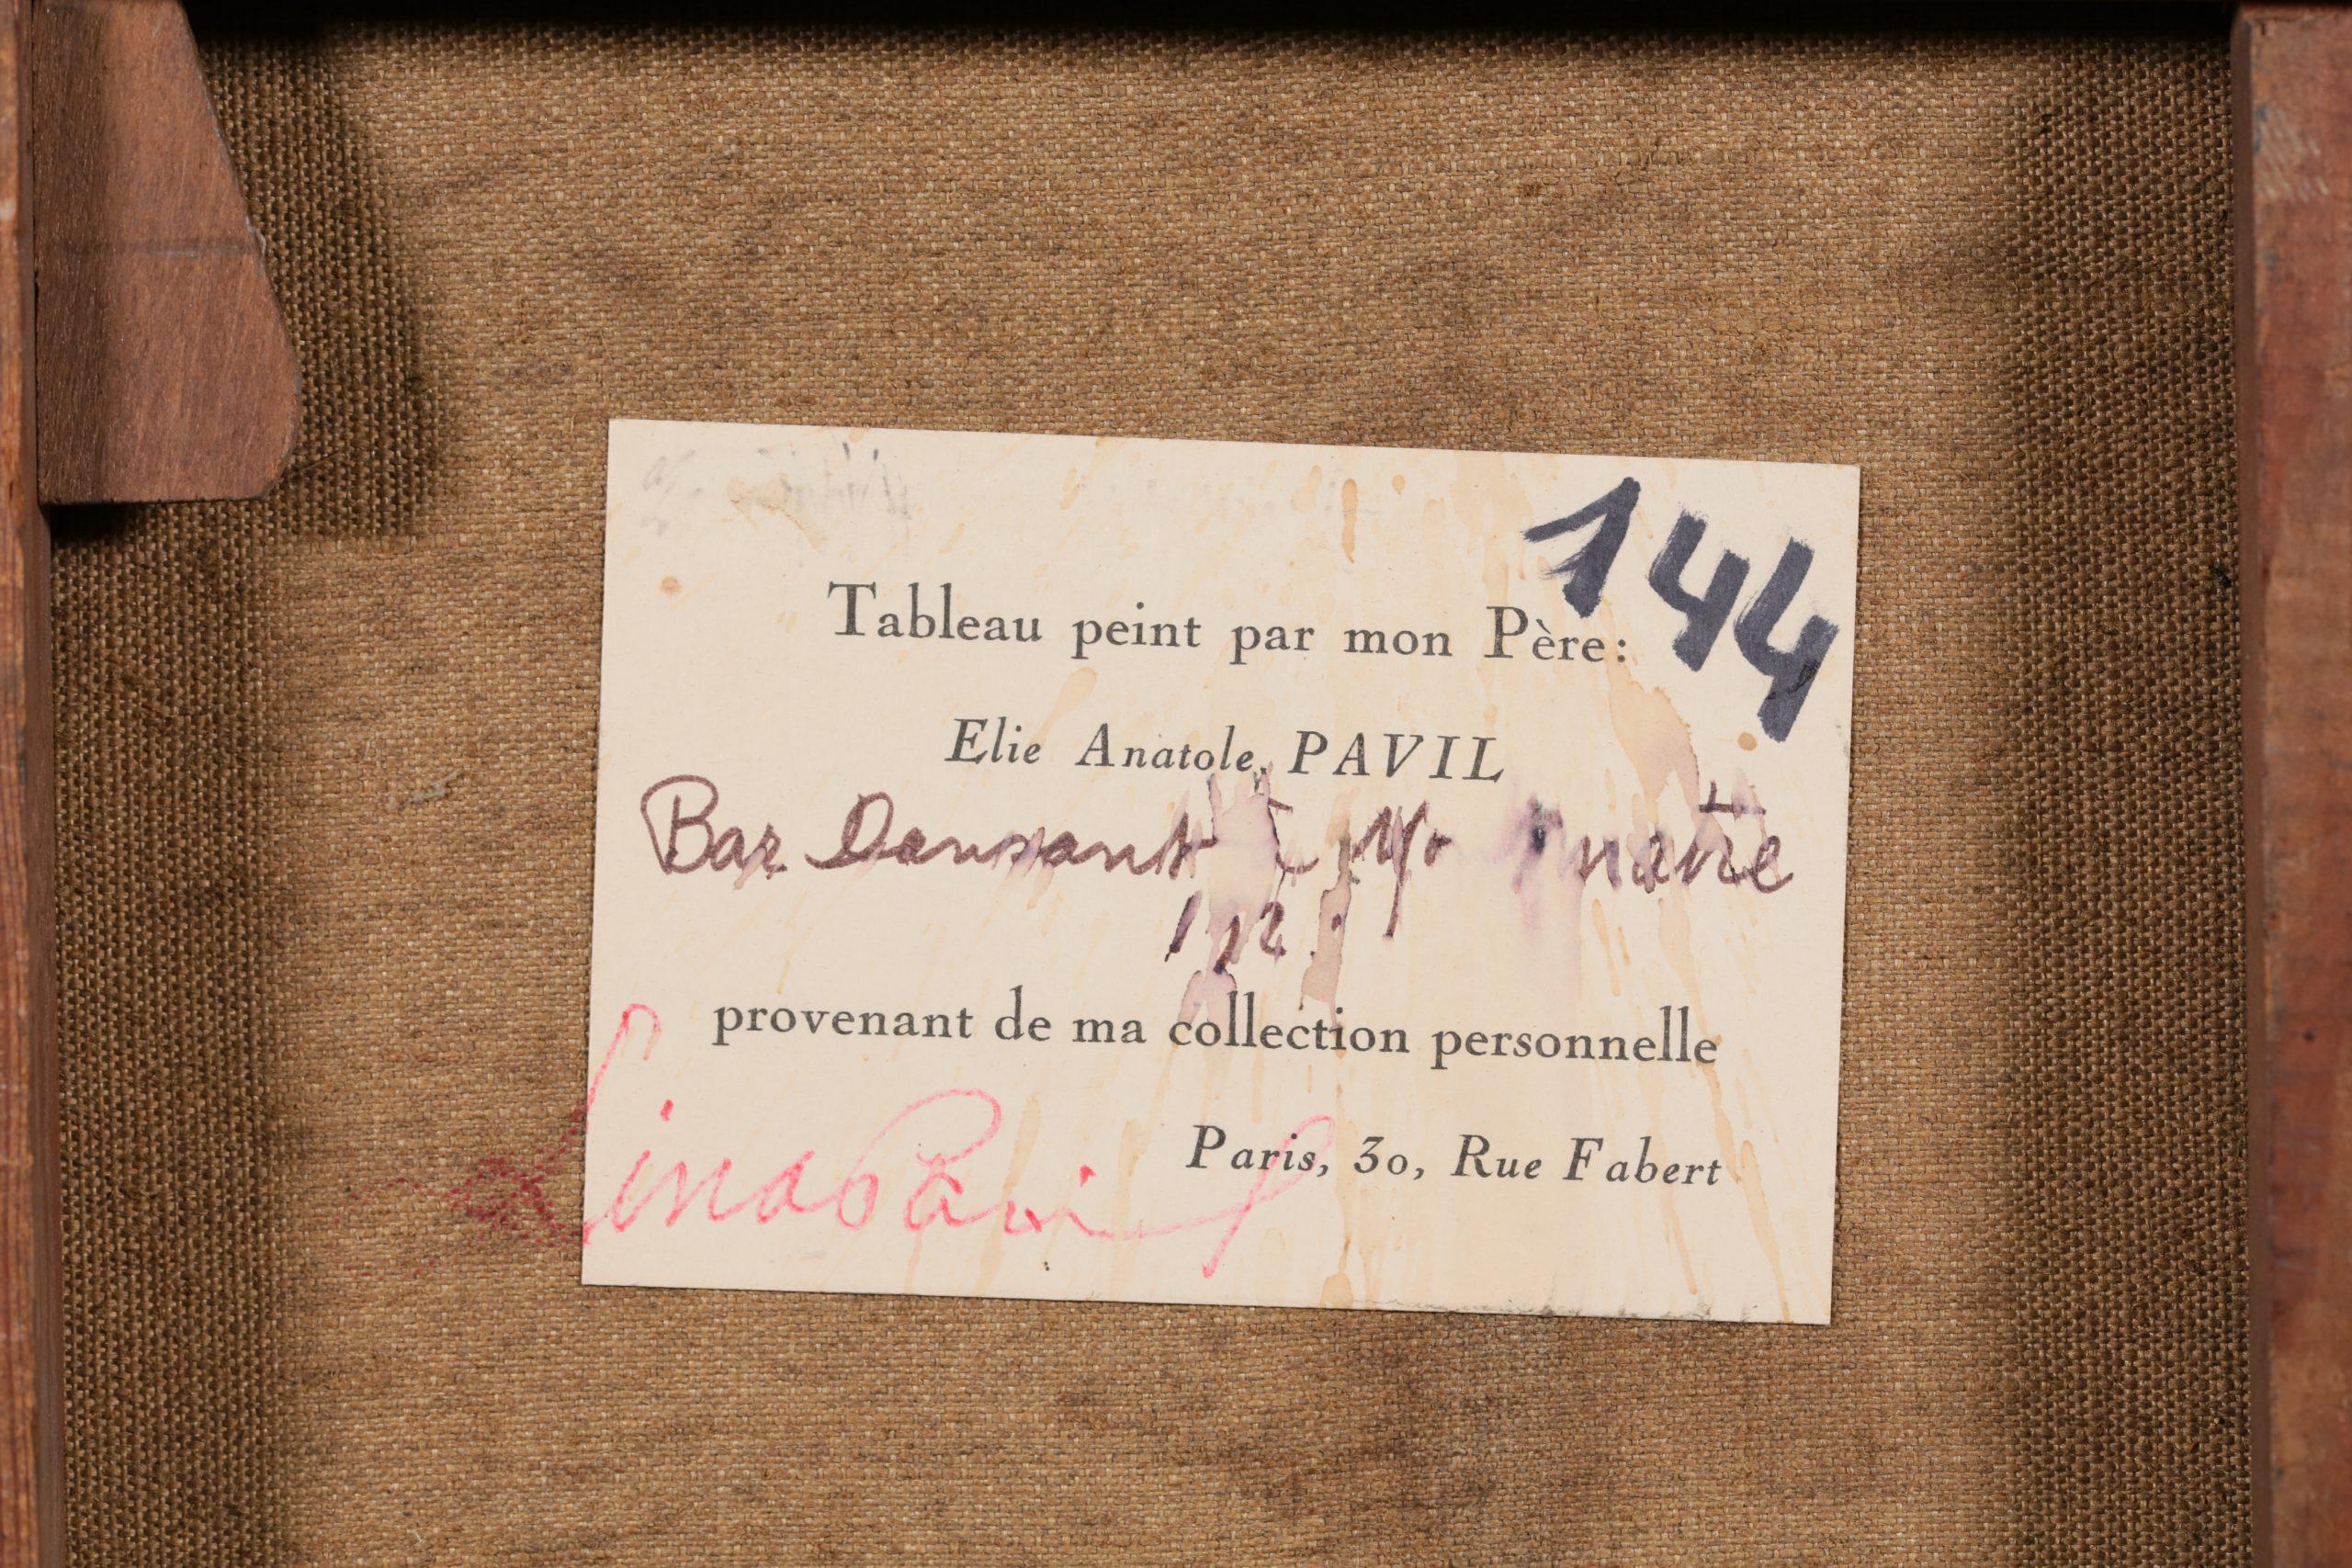 144
Tableau peint par mon Père:
Elie Anatole PAVIL
Bar Dansant à
provenant de ma collection personnelle
Paris, 30, Rue Fabert
Lina Pavil